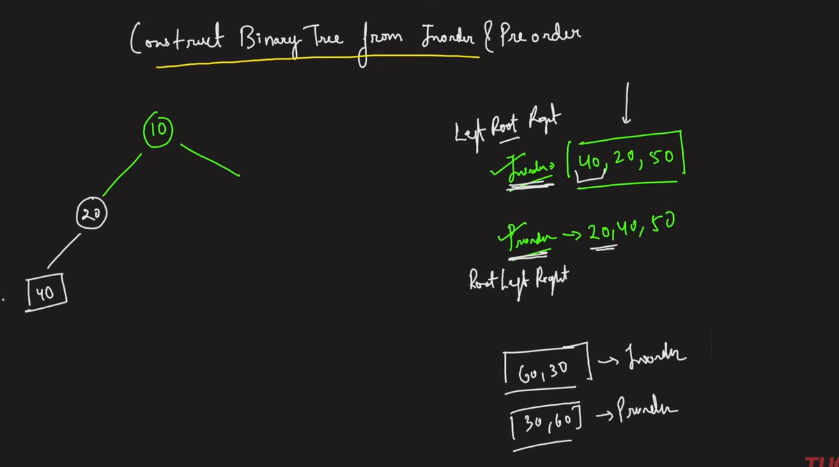 Construct Binary Tree from Inorder & Preorder
10
20
40
Left Root Right
Inorder → [40, 20, 50]
Preorder → 20, 40, 50
Root Left Right
[60, 30] → Inorder
[30, 60] → Preorder